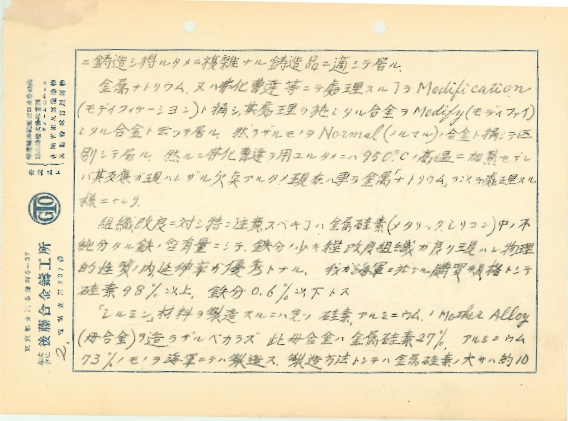 ニ鋳造シ得ルタメニ複雑ナル鋳造品ニ適シテ居ル.
金属ナトリウム.又ハ弗化曹達等ニテ処理スルヿヲ Modification
(モディフィケーション)ト稱シ其処理ヲ施シタル合金ヲ Modify(モディファイ)
シタル合金ト云ッテ居ル. 然ラザルモノヲ Normal(ノルマル)合金ト稱シテ区
別シテ居ル. 然ルニ弗化曹達ヲ用ユルタニハ 950°Cノ高温ニ加熱セザレ
バ其反應ガ現ハレザル欠矣アルタメ現在ハ専ラ金属ナトリウムニテ処理スル
様ニナレリ.
組織改良ニ対シ特ニ注意スベキヿハ金属硅素(メタリックシリコン)中ノ不
純分タル鉄ノ含有量ニシテ、鉄分ノ少キ程改良組織ガ良ク現ハレ物理
的性質ノ内延伸率ガ優秀トナル. 我ガ海軍ニ於ケル購買規格トシテ
硅素98%以上, 鉄分0.6%以下トス
シルミン材料ヲ製造スルニハ先ヅ硅素,アルミニウムノ Mother Alloy
(母合金)ヲ造ラザルベカラズ 此母合金ハ金属硅素27%, アルミニウム
73%ノモノヲ海軍ニテハ製造ス. 製造方法トシテハ金属硅素ノ大サハ約10
後藤合金鑄工所
2.